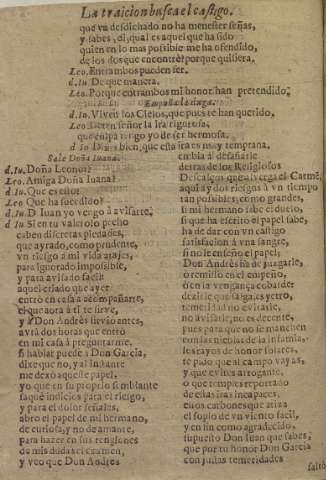 La traicion busca el castigo.
que vn desdichado no ha menester señas,
y sabes, di, qual es aquel que ha sido
quien en lo mas possible me ha ofendido,
de los dos que encontrè? porque quisiera,
Leo. Entrambos pueden ser.
d. Iu. De que manera.
Leo. Porque entrambos mi honor han pretendido.
Empuña la daga.
d. Iu. Viven los Cielos, que pues te han querido,
Leo. Deten señor la ira rigurosa,
que culpa tengo yo de ser hermosa.
d. Iu. bien, que esta ira es muy temprana,
Sale Doña Iuana.
d. Iu. Doña Leonor?
Leo. Amiga Doña Iuana?
d. Iu. Que es esto?
Leo Que ha sucedido?
d. Iu. D. Iuan yo vengo à avisarte,
d. Iu Si en tu valeroso pecho
caben discretas piedades,
que ayrado, como prudente,
vn riesgo a mi vida atajes,
para ignorado impossible,
y para avisado facil:
aquel criado que ayer
entrò en casa a acompañarte,
el que aora à ti te sirve,
y à Don Andrès llevò antes,
avrà dos horas que entrò
en mi casa à preguntarme,
si hablar puede à Don Garcia,
dixe que no, y al instante
me dexò aquelle papel,
yo que en su proprio semblante
saquè indicios para el riesgo,
y para el dolor señales,
abro el papel de mi hermano,
de curiosa, y no de amante,
para hazer en sus renglones
de mis dudas examen,
y veo que Don Andres
embia al desafiarle
detras de los Religiosos
Descalços que al Carmē,
aqui ay dos riesgos à vn tiempo
tan possibles, como grandes,
si mi hermano sabe el duelo,
si que ha escrito el papel sabe,
ha de dar con vn castigo
satisfacion à vna sangre,
si no le enseño el papel,
Don Andrès ha de juzgarle,
ò remisso en el empeño,
ò en la vengança cobarde:
dezirle que salga, es yerro,
temeridad no evitarle,
no avisarle, no es decente,
pues para que no se manchen
con las nieblas de la infamia,
los rayos de honor solares,
te pido que al campo vayas,
y que evites arrogante,
ò que temples reportado
de essas iras incapaces,
essos carbones que atiza
el soplo de vn viento facil,
y en fin como agradecido,
supuesto Don Iuan que sabes,
que por tu honor Don Garcia
con justas temeridades